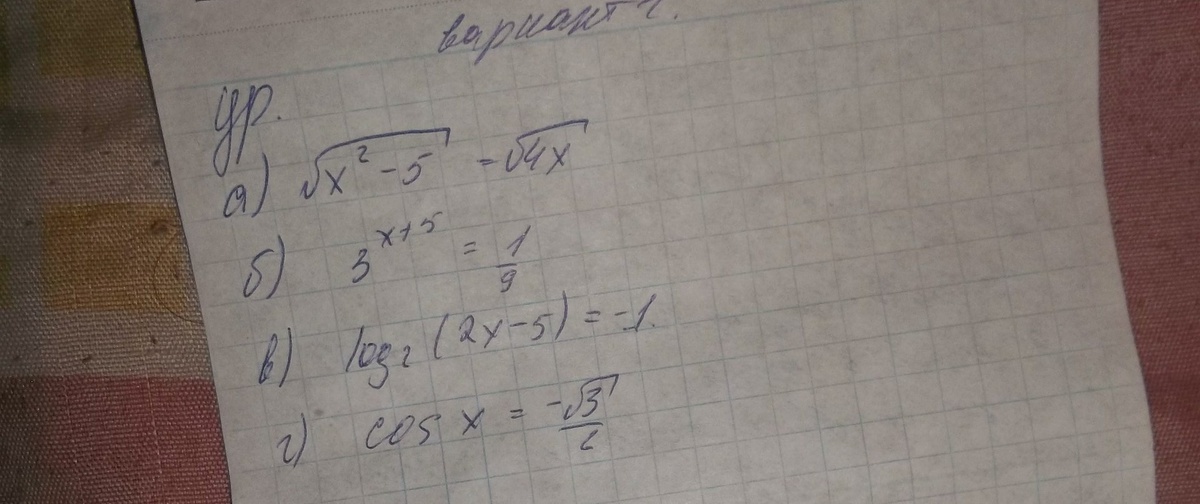 вариант 2.
ур.
а) √(x² - 5) = √(4x)
б) 3^(x+5) = 1/9
в) log₂ (2x - 5) = -1.
г) cos x = -√3/2